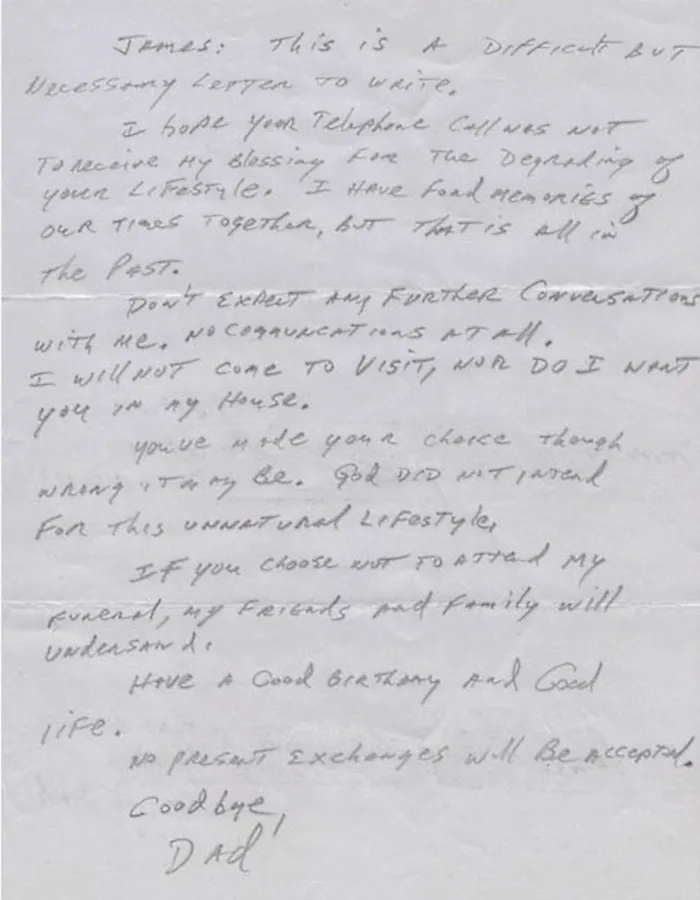 James: This is a difficult but
necessary letter to write.
I hope your telephone call was not
to receive my blessing for the degrading of
your lifestyle. I have fond memories of
our times together, but that is all in
the past.
Don't expect any further conversations
with me. No communcations at all.
I will not come to visit, nor do I want
you in my house.
You've made your choice though
wrong it may be. God did not intend
for this unnatural lifestyle.
If you choose not to attend my
funeral, my friends and family will
undersand.
Have a good birthday and good
life.
No present exchanges will be accepted.
Goodbye,
Dad